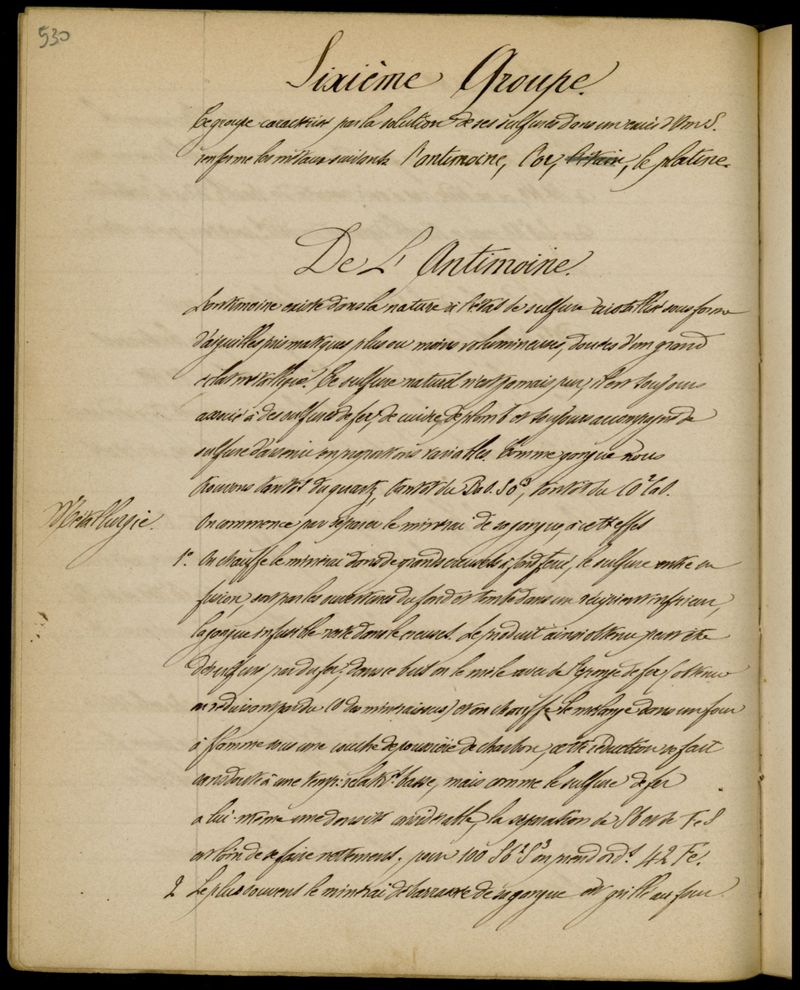 530
Sixième Groupe.
Ce groupe caractérisé par la solution de ses sulfures dans un excès d'Am S.
renferme les métaux suivants l'antimoine, l'or, l'étain, le platine.
De L'Antimoine.
L'antimoine existe dans la nature à l'état de sulfure cristallisé sous forme
d'aiguilles prismatiques plus ou moins volumineuses, douées d'un grand
éclat métallique. Ce sulfure naturel n'est jamais pur, il est toujours
associé à des sulfures de fer, de cuivre, de plomb et toujours accompagné de
sulfure d'arsenic en proportions variables. Comme gangue nous
trouvons tantôt du quartz, tantôt du BaO.SO³, tantôt du CO²CaO.
Métallurgie.
On commence par séparer le minerai de sa gangue à cet effet
1º On chauffe le minerai dans de grands creusets à fond percé, le sulfure entre en
fusion, sort par les ouvertures du fond et tombe dans un récipient inférieur,
la gangue infusible reste dans le creuset. Le produit ainsi obtenu peut être
désulfuré par du fer, dans ce but on le mêle avec de l'éponge de fer (obtenue
en réduisant par du C des minerais) et on chauffe le mélange dans un four
à flamme sous une couche de poussière de charbon, cette réduction se fait
à une temp. relativt basse, mais comme le sulfure de fer
a lui-même une densité considérable, la séparation de Sb et de FeS
est loin de se faire nettement, pour 100 Sb²S³ on prend ord.t 42 Fe.
2 Le plus souvent le minerai débarrassé de sa gangue est grillé au four